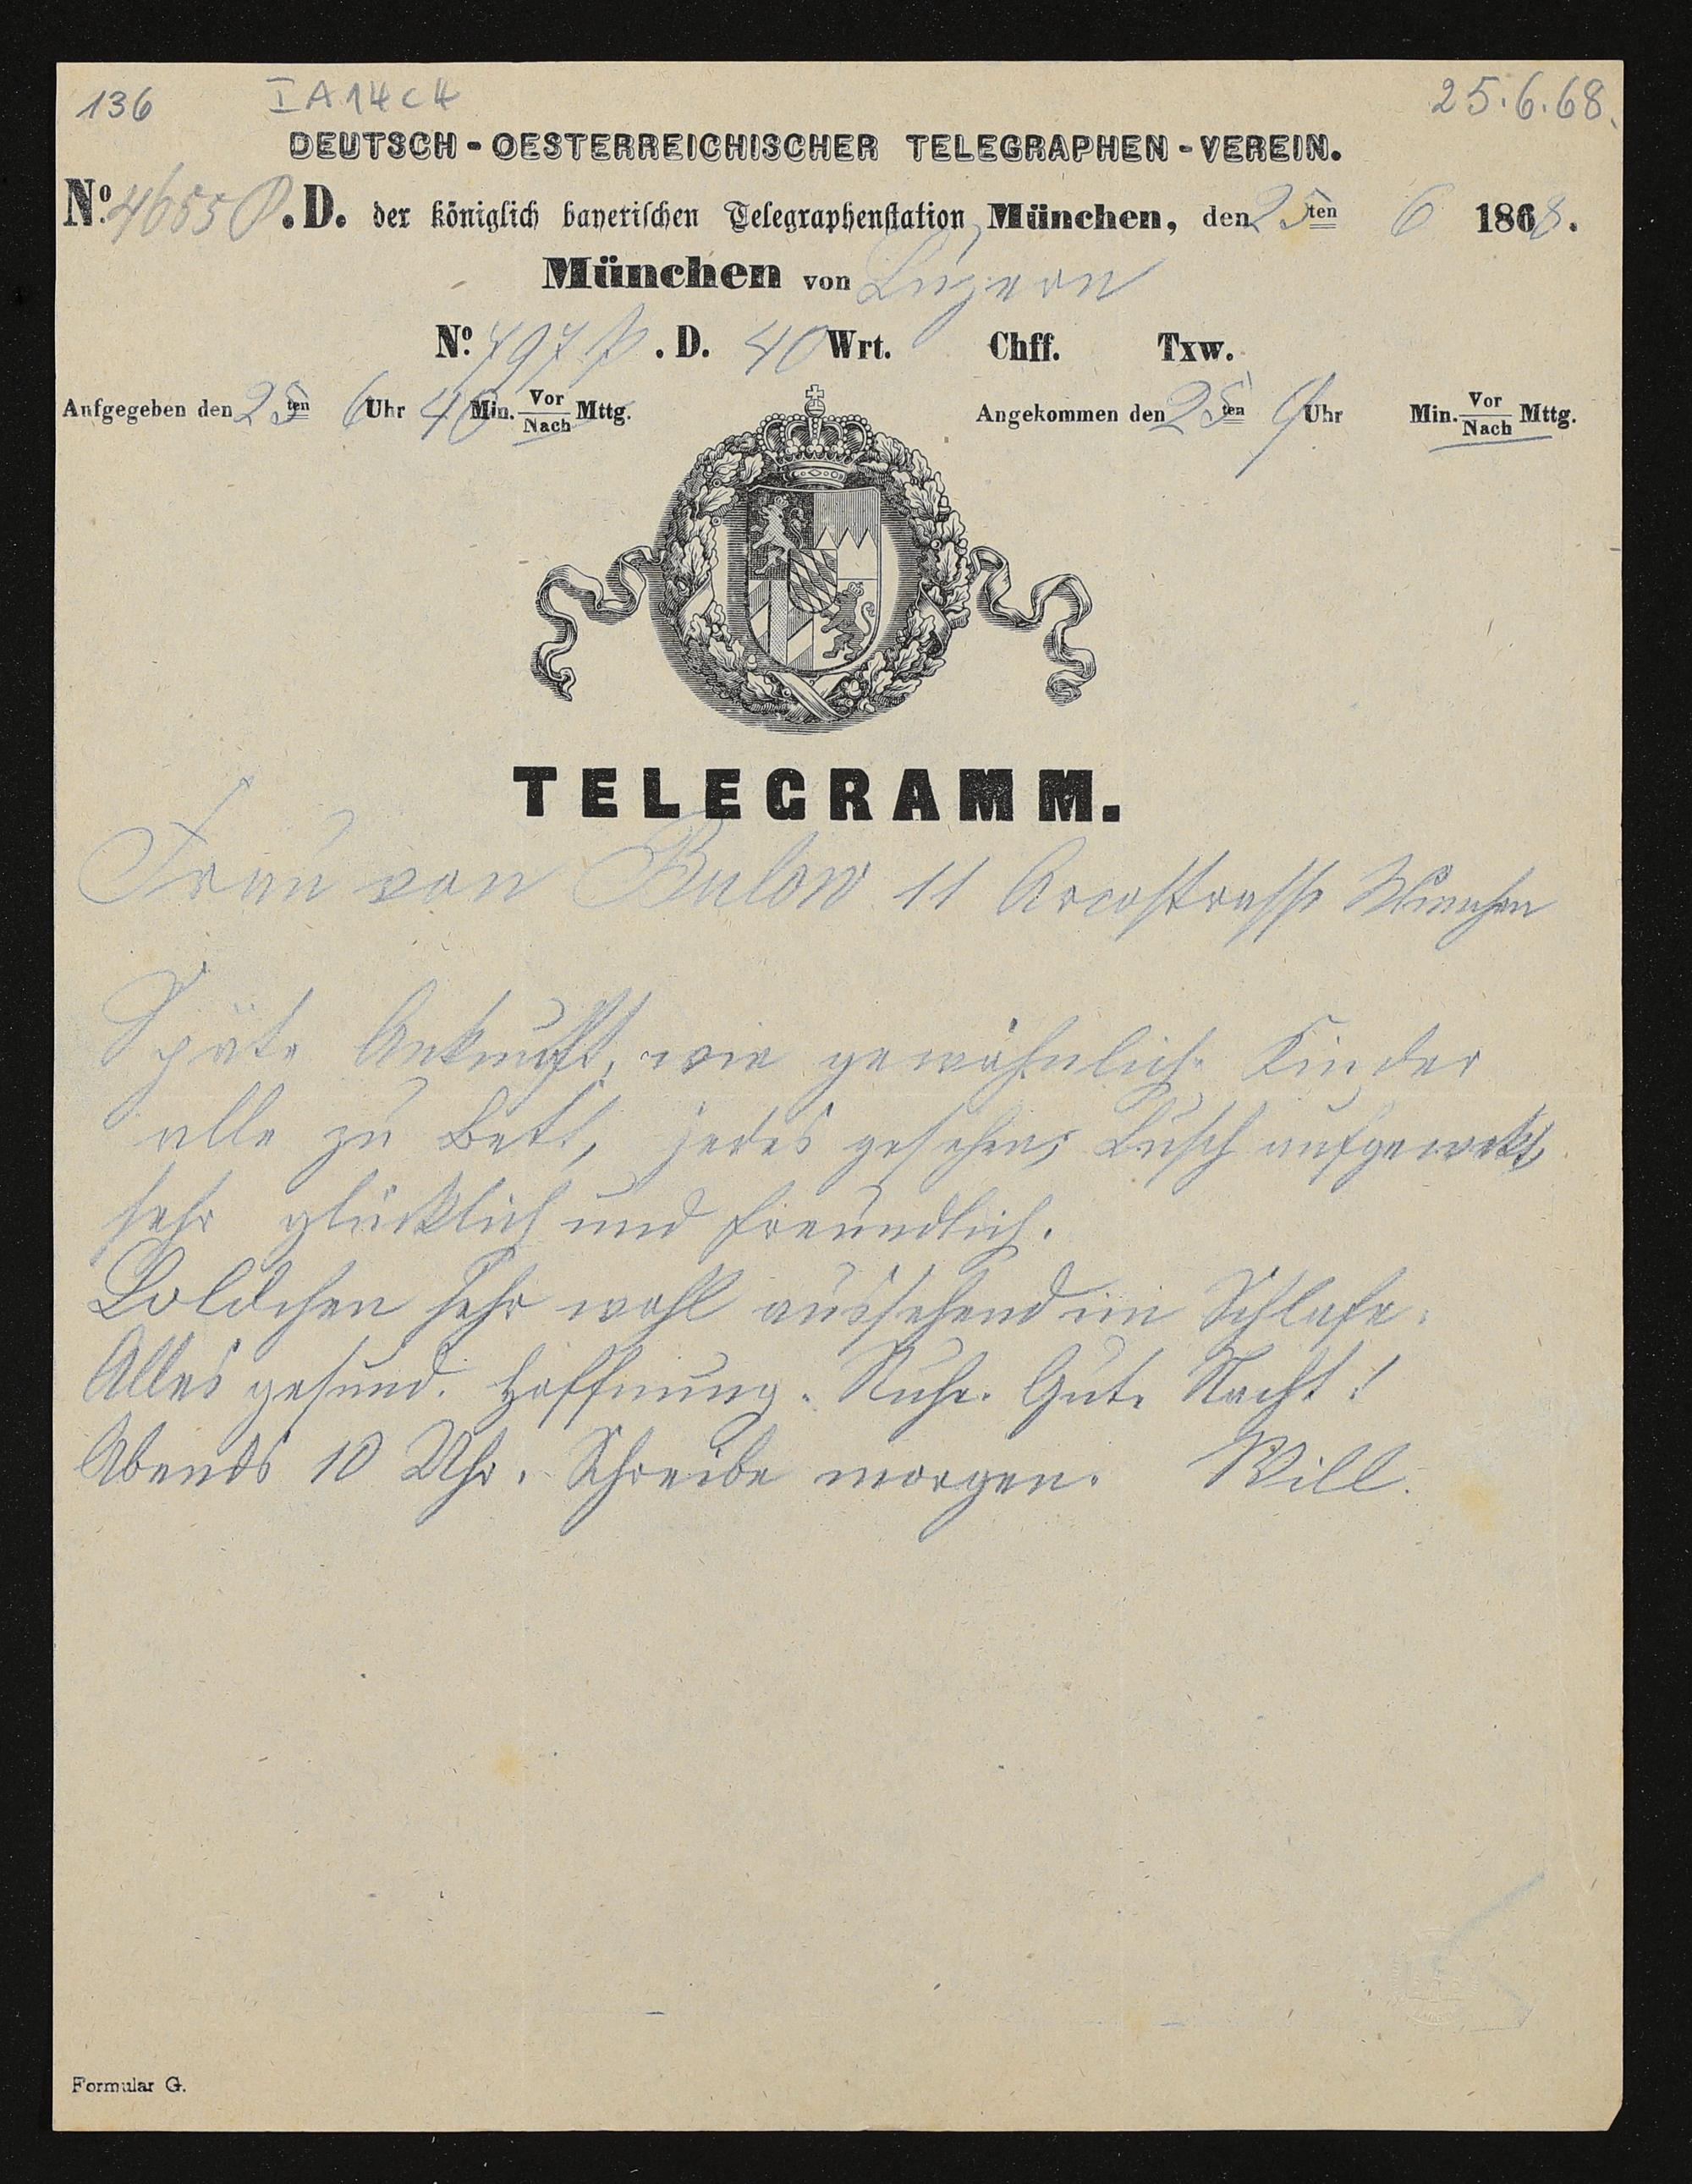 136 I A 14 c 4 25.6.68.
DEUTSCH - OESTERREICHISCHER TELEGRAPHEN - VEREIN.
No. 4655 P. D. der königlich bayerischen Telegraphenstation München, den 25ten 6 1868.
München von Luzern
No. 797 P. D. 40 Wrt. Chff. Txw.
Aufgegeben den 25ten 6 Uhr 40 Min. Vor/Nach Mttg. Angekommen den 25ten 9 Uhr Min. Vor/Nach Mttg.
TELEGRAMM.
Frau von Bulow 11 Arcostrasse München
Späte Ankunft, wie gewöhnlich. Kinder
alle zu Bett, jedes gesehen, Lusch aufgewekt,
sehr glücklich und freundlich.
Loldchen sehr wohl aussehend im Schlafe.
Alles gesund. Hoffnung. Ruhe. Gute Nacht!
Abends 10 Uhr. Schreibe morgen. Will.
Formular G.